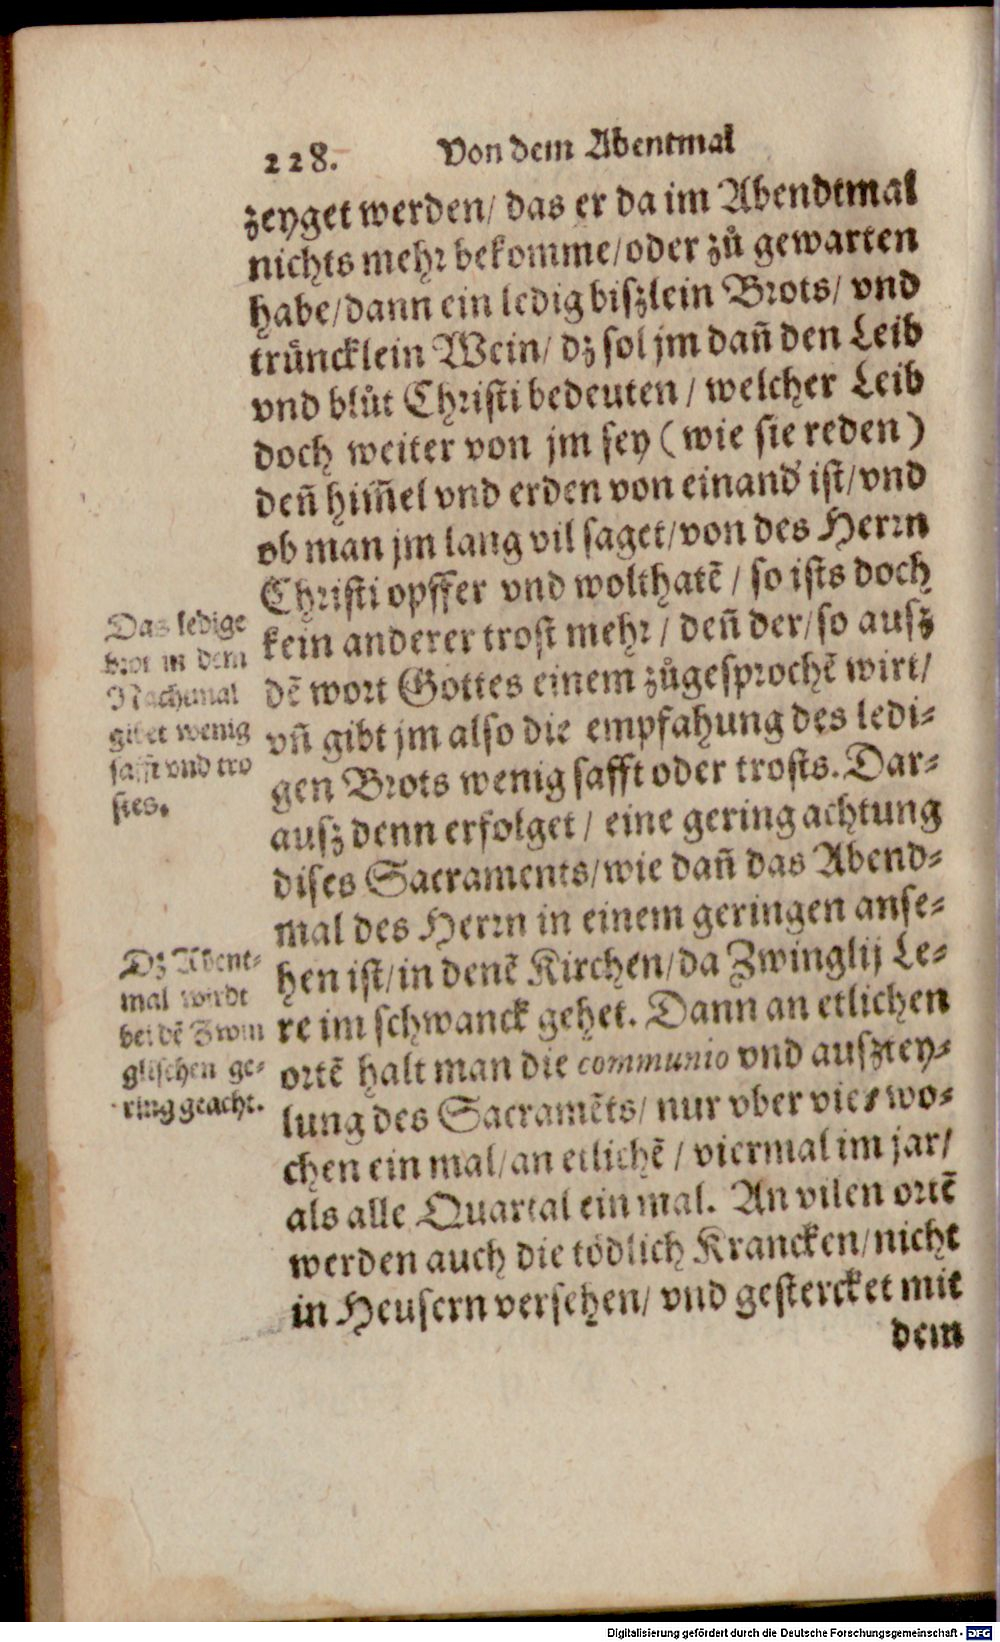 228. Von dem Abentmal
zeyget werden/ das er da im Abendtmal
nichts mehr bekomme/oder zů gewarten
habe/dann ein ledig biszlein Brots/ vnd
trüncklein Wein/ dz sol jm dañ den Leib
vnd blůt Christi bedeuten / welcher Leib
doch weiter von jm sey (wie sie reden)
deñ him̃el vnd erden von einand' ist/vnd
ob man jm lang vil saget/von des Herrn
Christi opffer vnd wolthatẽ / so ists doch
kein anderer trost mehr / deñ der/so ausz
dẽ wort Gottes einem zůgesprochẽ wirt/
vñ gibt jm also die empfahung des ledi-
gen Brots wenig safft oder trosts. Dar-
ausz denn erfolget / eine gering achtung
dises Sacraments/wie dañ das Abend-
mal des Herrn in einem geringen anse-
hen ist/in denẽ Kirchen/da Zwinglij Le-
re im schwanck gehet. Dann an etlichen
ortẽ halt man die communio vnd ausztey-
lung des Sacramẽts/ nur vber vier wo-
chen ein mal/an etlichẽ / viermal im jar/
als alle Quartal ein mal. An vilen ortẽ
werden auch die tödlich Krancken/nicht
in Heusern versehen/ vnd gestercket mit
dem
Das ledige
brot in dem
Nachtmal
gibet wenig
safft vnd tro
stes.
Dz Abent-
mal wirdt
bei dẽ Zwin
glischen ge-
ring geacht.
Digitalisierung gefördert durch die Deutsche Forschungsgemeinschaft - DFG